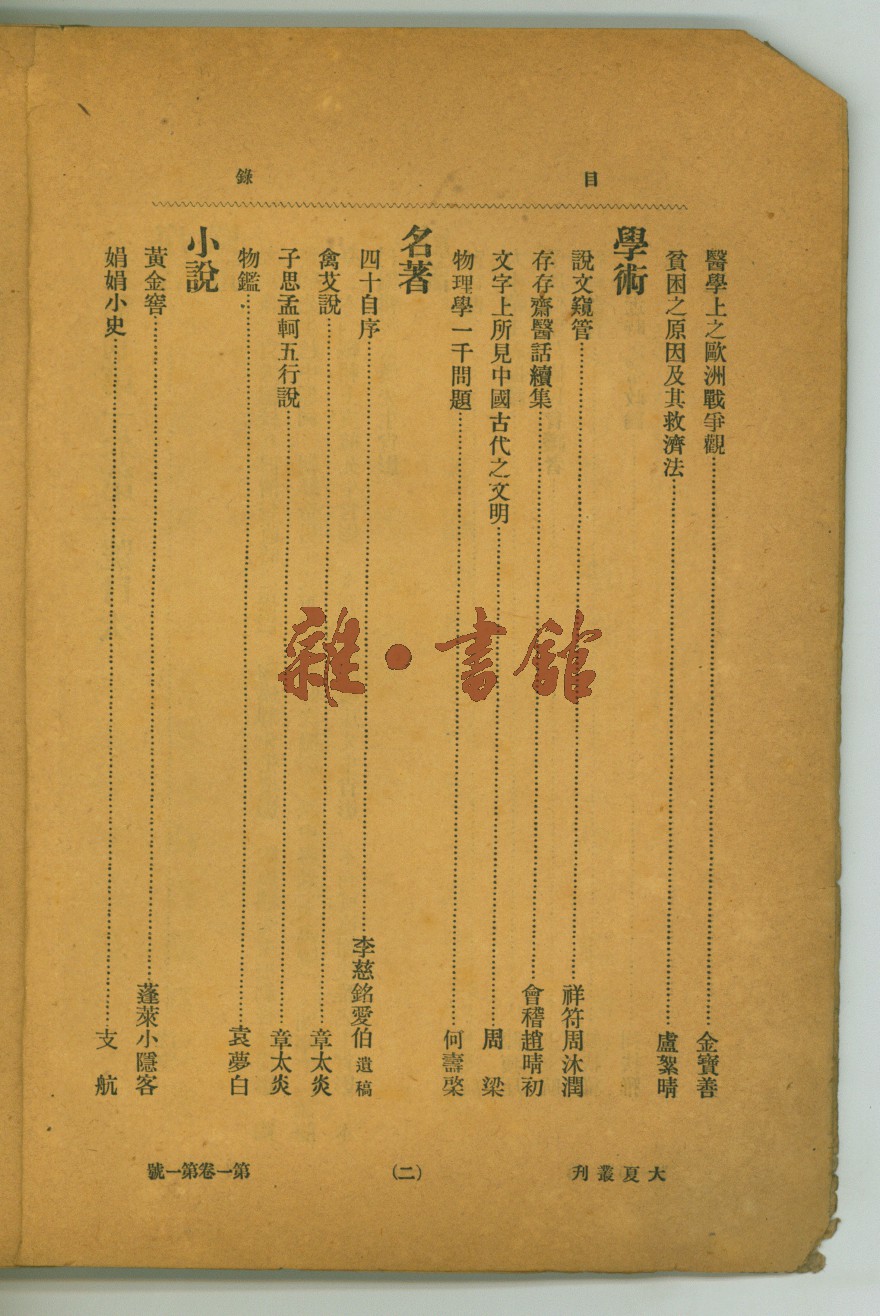 目錄
醫學上之歐洲戰爭觀…………金寶善
貧困之原因及其救濟法…………盧絮晴
學術
說文窺管…………祥符周沐潤
存存齋醫話續集…………會稽趙晴初
文字上所見中國古代之文明…………周梁
物理學一千問題…………何壽棨
名著
四十自序…………李慈銘愛伯遺稿
禽艾說…………章太炎
子思孟軻五行說…………章太炎
物鑑…………袁夢白
小說
黃金窖…………蓬萊小隱客
娟娟小史…………支航
大夏叢刊
(二)
第一卷第一號
雜·書館